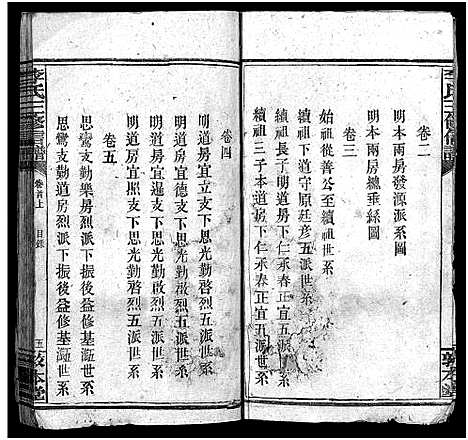 卷二
明本兩房發源派系圖
明本兩房總垂絲圖
卷三
始祖從善公至續祖世系
續祖次子下道守原廷彦五派世系
續祖長子明道房下仁承春正宜五派世系
續祖三子本道房下仁承春正宜五派世系
卷四
明道房宜賜支下思光勤啓烈五派世系
明道房宜德支下思光勤啓烈五派世系
明道房宜暹支下思光勤啟烈五派世系
明道房宜昭支下思光勤啓烈五派世系
卷五
思鸞支勤道房烈派下振後益修基五世系
思鸞支勤樂房烈派下振後益修基五世系
李氏三修信譜
卷首上
目錄
五
敦本堂